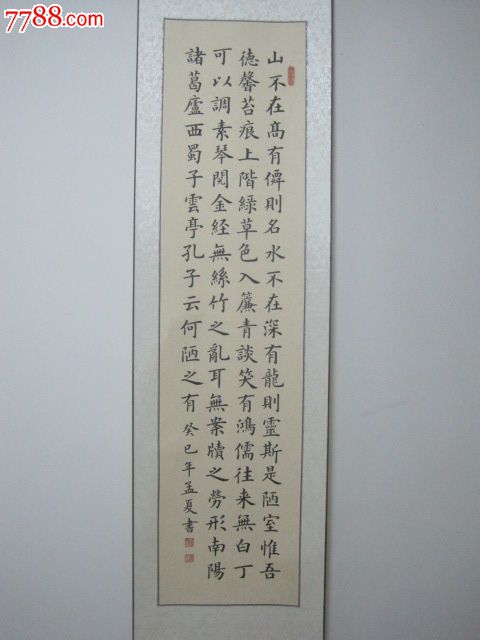 7788.com
中国收藏热线
山不在髙有僊則名水不在深有龍則靈斯是陋室惟吾
徳馨苔痕上階綠草色入簾青談笑有鴻儒往来無白丁
可以調素琴閲金経無絲竹之亂耳無案牘之勞形南陽
諸葛廬西蜀子雲亭孔子云何陋之有 癸巳年孟夏書